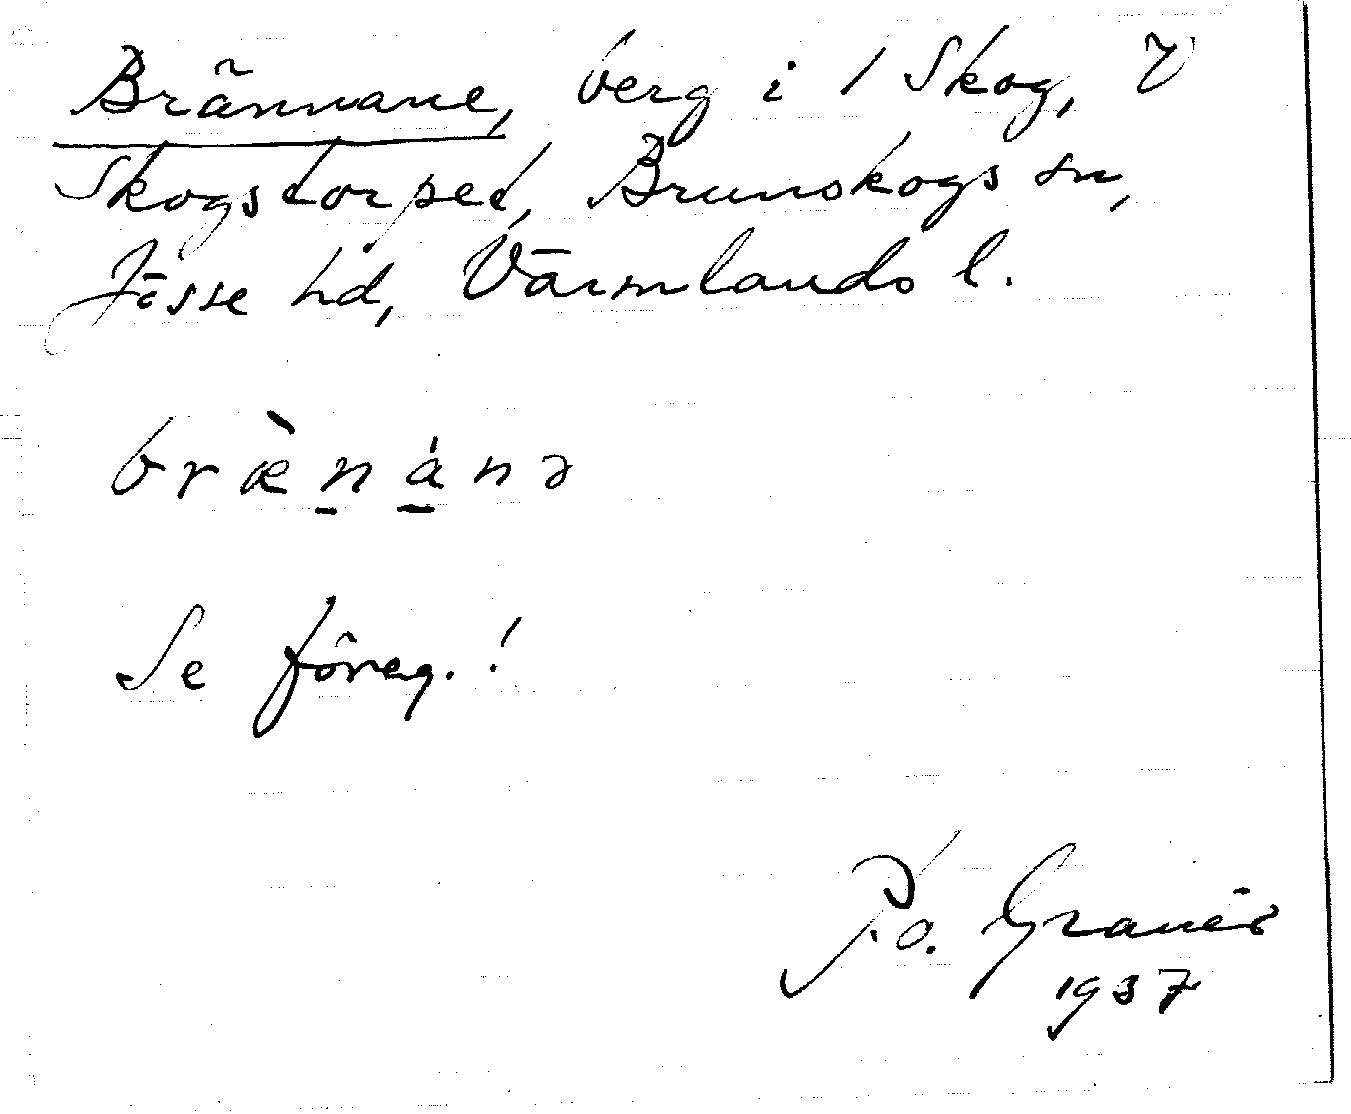 Brännane, berg i 1 Skog, V
Skogstorpet, Brunskogs sn,
Jösse hd, Värmlands l.
bræ̀n̲á̲nə
Se föreg.!
P.o. Granér
1937